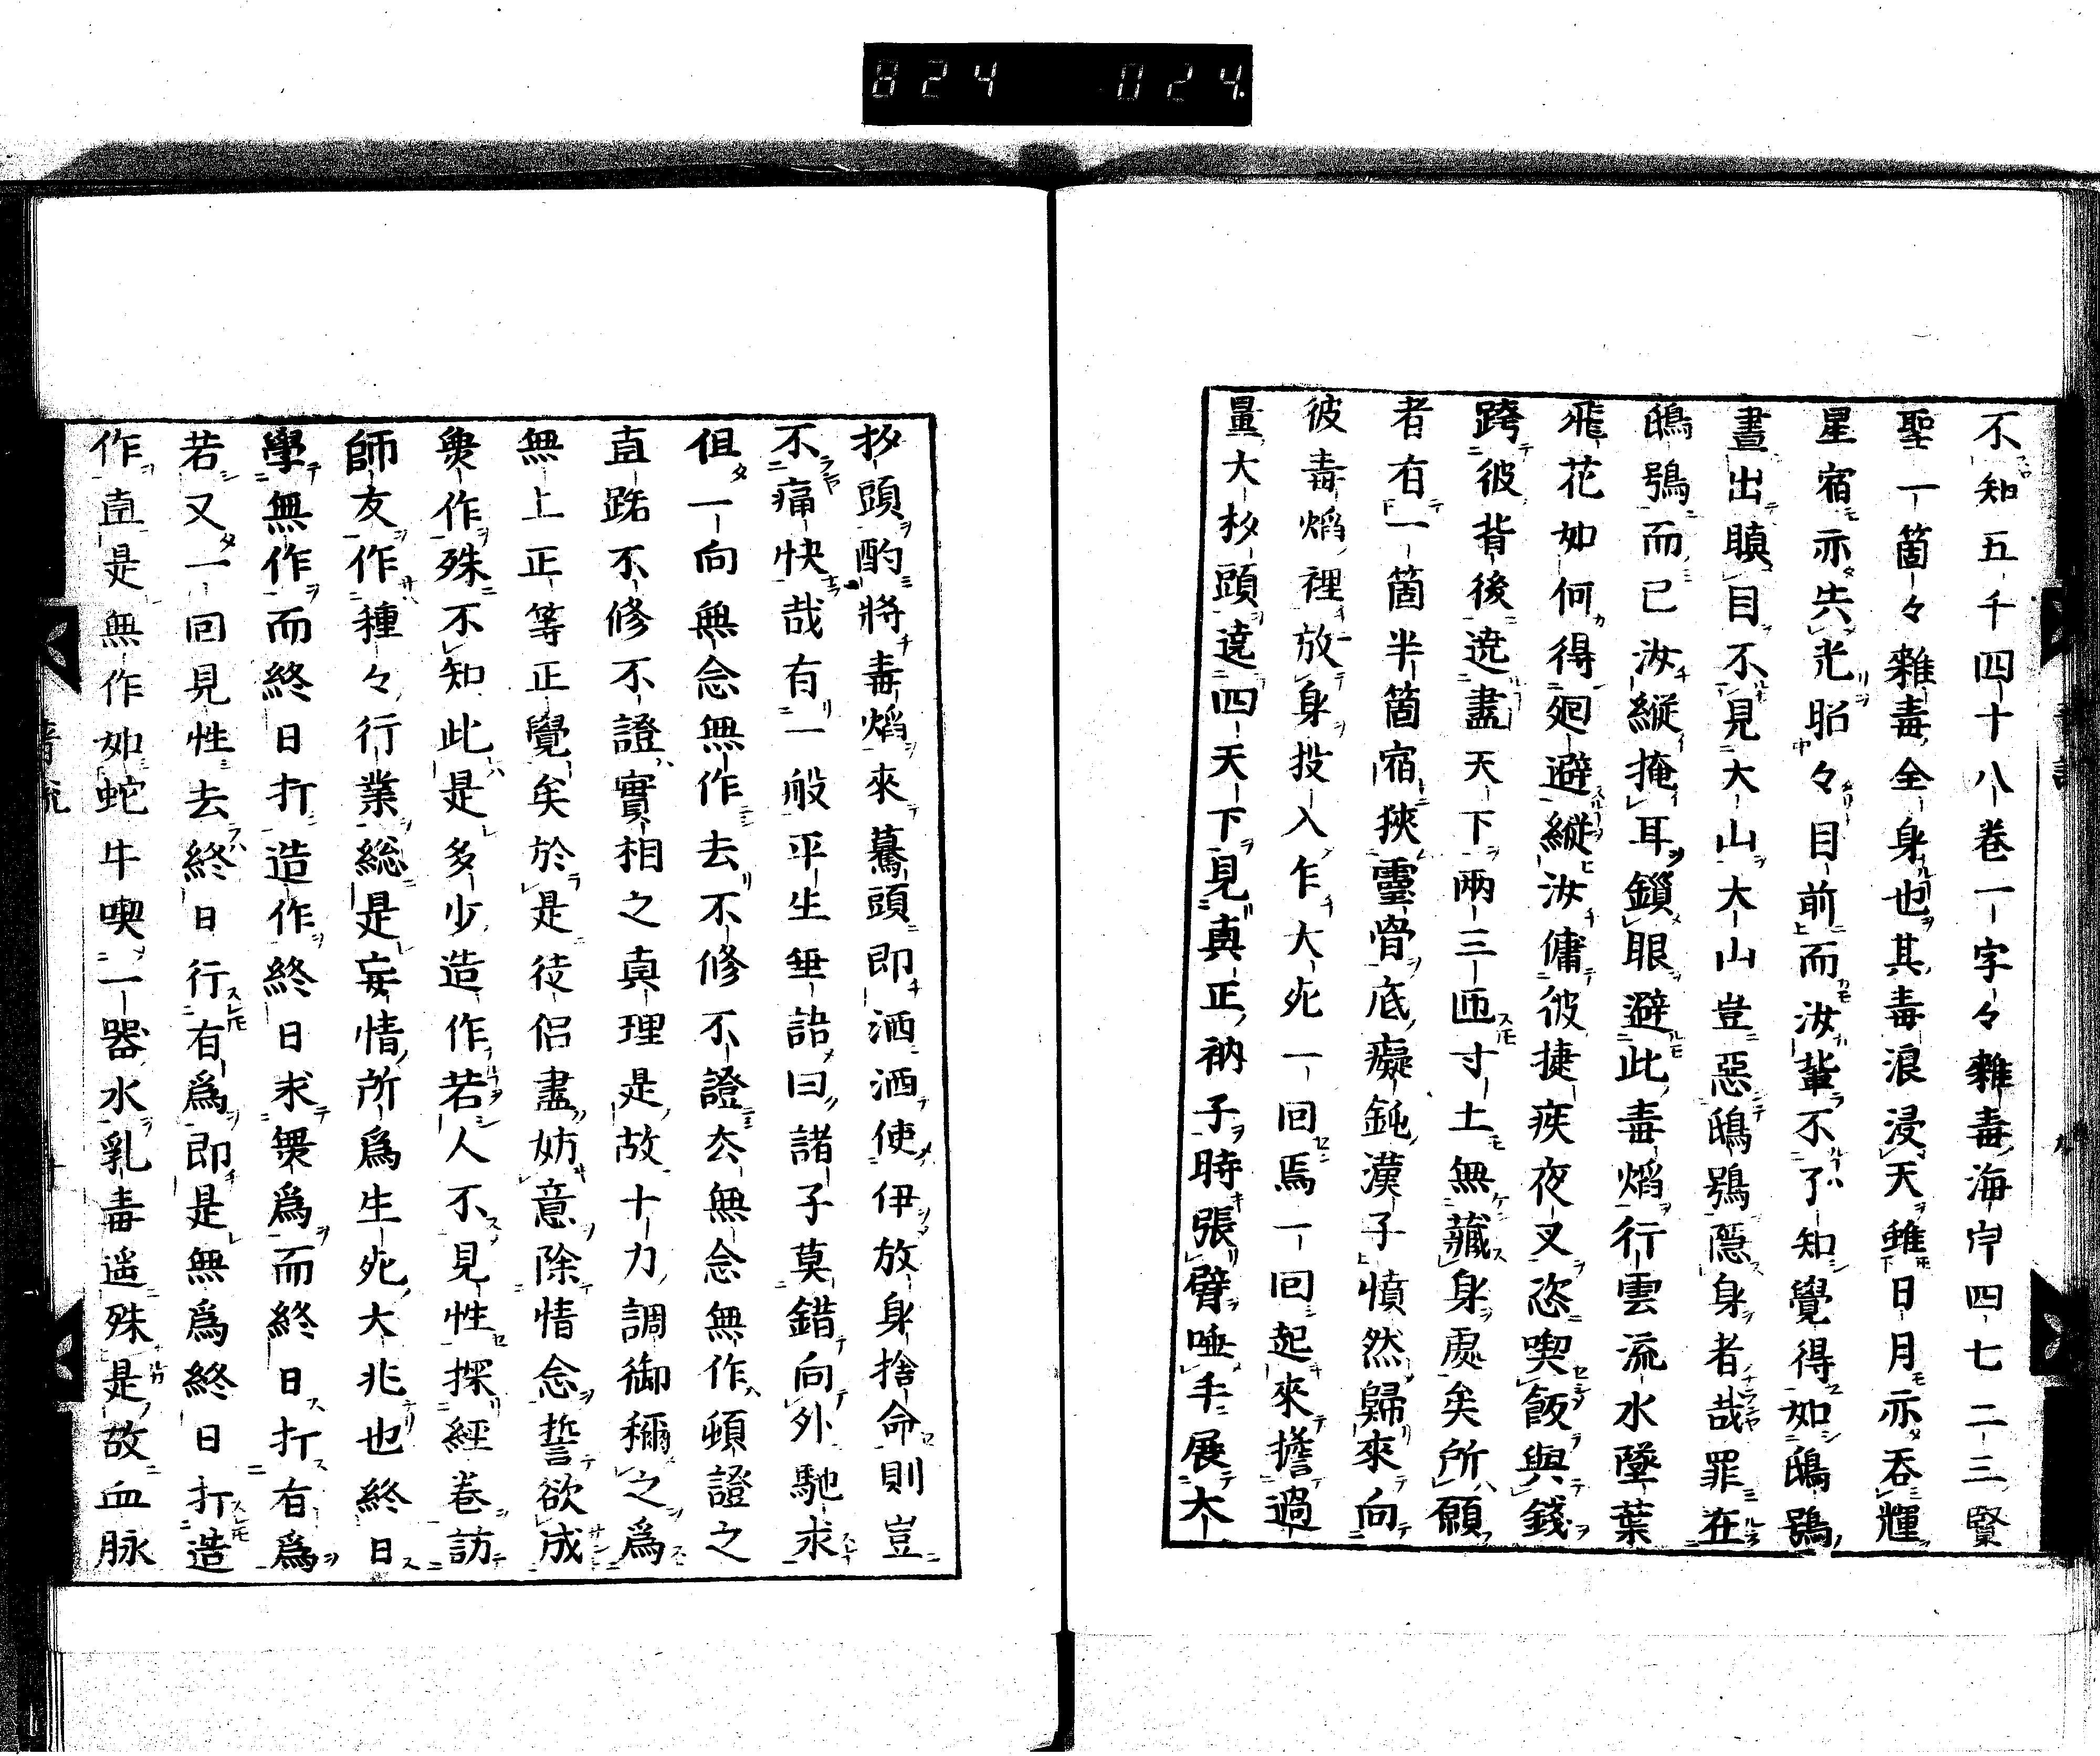 824 024
不知五千四十八卷一字々雜毒海岸四七二三賢
聖一箇々雜毒全身也其毒浪浸天雖日月亦吞輝
星宿亦失光昭々目前而汝輩不了知覺得如鴟鴞
晝出瞋目不見大山大山豈惡鴟鴞隱身者哉罪在
鴟鴞而已汝縱掩耳鎖眼避此毒焰行雲流水墜葉
飛花如何得廻避縱汝傭彼捷疾夜叉恣喫飯與錢
跨彼背後遶盡天下兩三匝寸土無藏身處矣所願
者有一箇半箇宿挾靈骨底癡鈍漢子憤然歸來向
彼毒焰裡放身投入乍大死一回焉一回起來擔過
量大杓頭遶四天下見真正衲子時張臂唾手展大
杓頭酌將毒焰來驀頭即洒洒使伊放身捨命則豈
不痛快哉有一般平生垂語曰諸子莫錯向外馳求
但一向無念無作去不修不證去無念無作頓證之
直路不修不證實相之真理是故十力調御稱之爲
無上正等正覺矣於是徒侶盡妨意除情念誓欲成
無作殊不知此是多少造作若人不見性探經卷訪
師友作種々行業総是妄情所爲生死大兆也終日
學無作而終日打造作終日求無爲而終日打有爲
若又一回見性去終日行有爲即是無爲終日打造
作直是無作如蛇牛喫一器水乳毒遥殊是故血脉